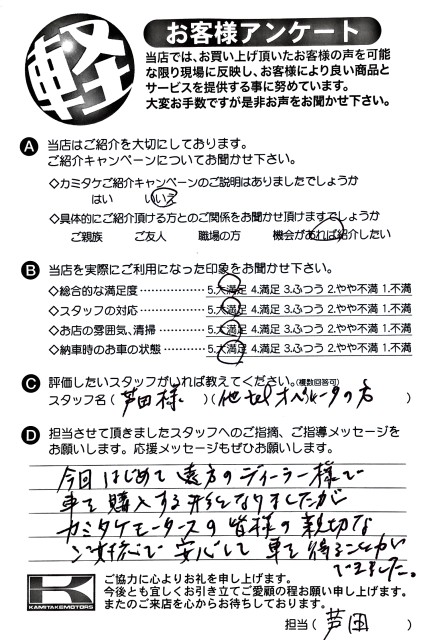 軽
お客様アンケート
当店では、お買い上げ頂いたお客様の声を可能
な限り現場に反映し、お客様により良い商品と
サービスを提供する事に努めています。
大変お手数ですが是非お声をお聞かせ下さい。
A 当店はご紹介を大切にしております。
ご紹介キャンペーンについてお聞かせ下さい。
◇カミタケご紹介キャンペーンのご説明はありましたでしょうか
はい いいえ
◇具体的にご紹介頂ける方とのご関係をお聞かせ頂けますでしょうか
ご親族 ご友人 職場の方 機会があれば紹介したい
B 当店を実際にご利用になった印象をお聞かせ下さい。
◇総合的な満足度‥‥‥‥‥ 5.大満足 4.満足 3.ふつう 2.やや不満 1.不満
◇スタッフの対応‥‥‥‥‥ 5.大満足 4.満足 3.ふつう 2.やや不満 1.不満
◇お店の雰囲気、清掃‥‥‥ 5.大満足 4.満足 3.ふつう 2.やや不満 1.不満
◇納車時のお車の状態‥‥‥ 5.大満足 4.満足 3.ふつう 2.やや不満 1.不満
C 評価したいスタッフがいれば教えてください。(複数回答可)
スタッフ名( 芦田様. )(他 オペレータの方 )
D 担当させて頂きましたスタッフへのご指摘、ご指導メッセージを
お願いします。応援メッセージもぜひお願いします。
今回はじめて遠方のディーラー様で
車を購入する形となりましたが
カミタケモータースの皆様の親切な
ご対応で安心して車を得ることが
できました。
K
KAMITAKEMOTORS
ご協力に心よりお礼を申し上げます。
今後とも宜しくお引き立てご愛顧の程お願い申し上げます。
またのご来店を心からお待ちしております。
担当( 芦田 )